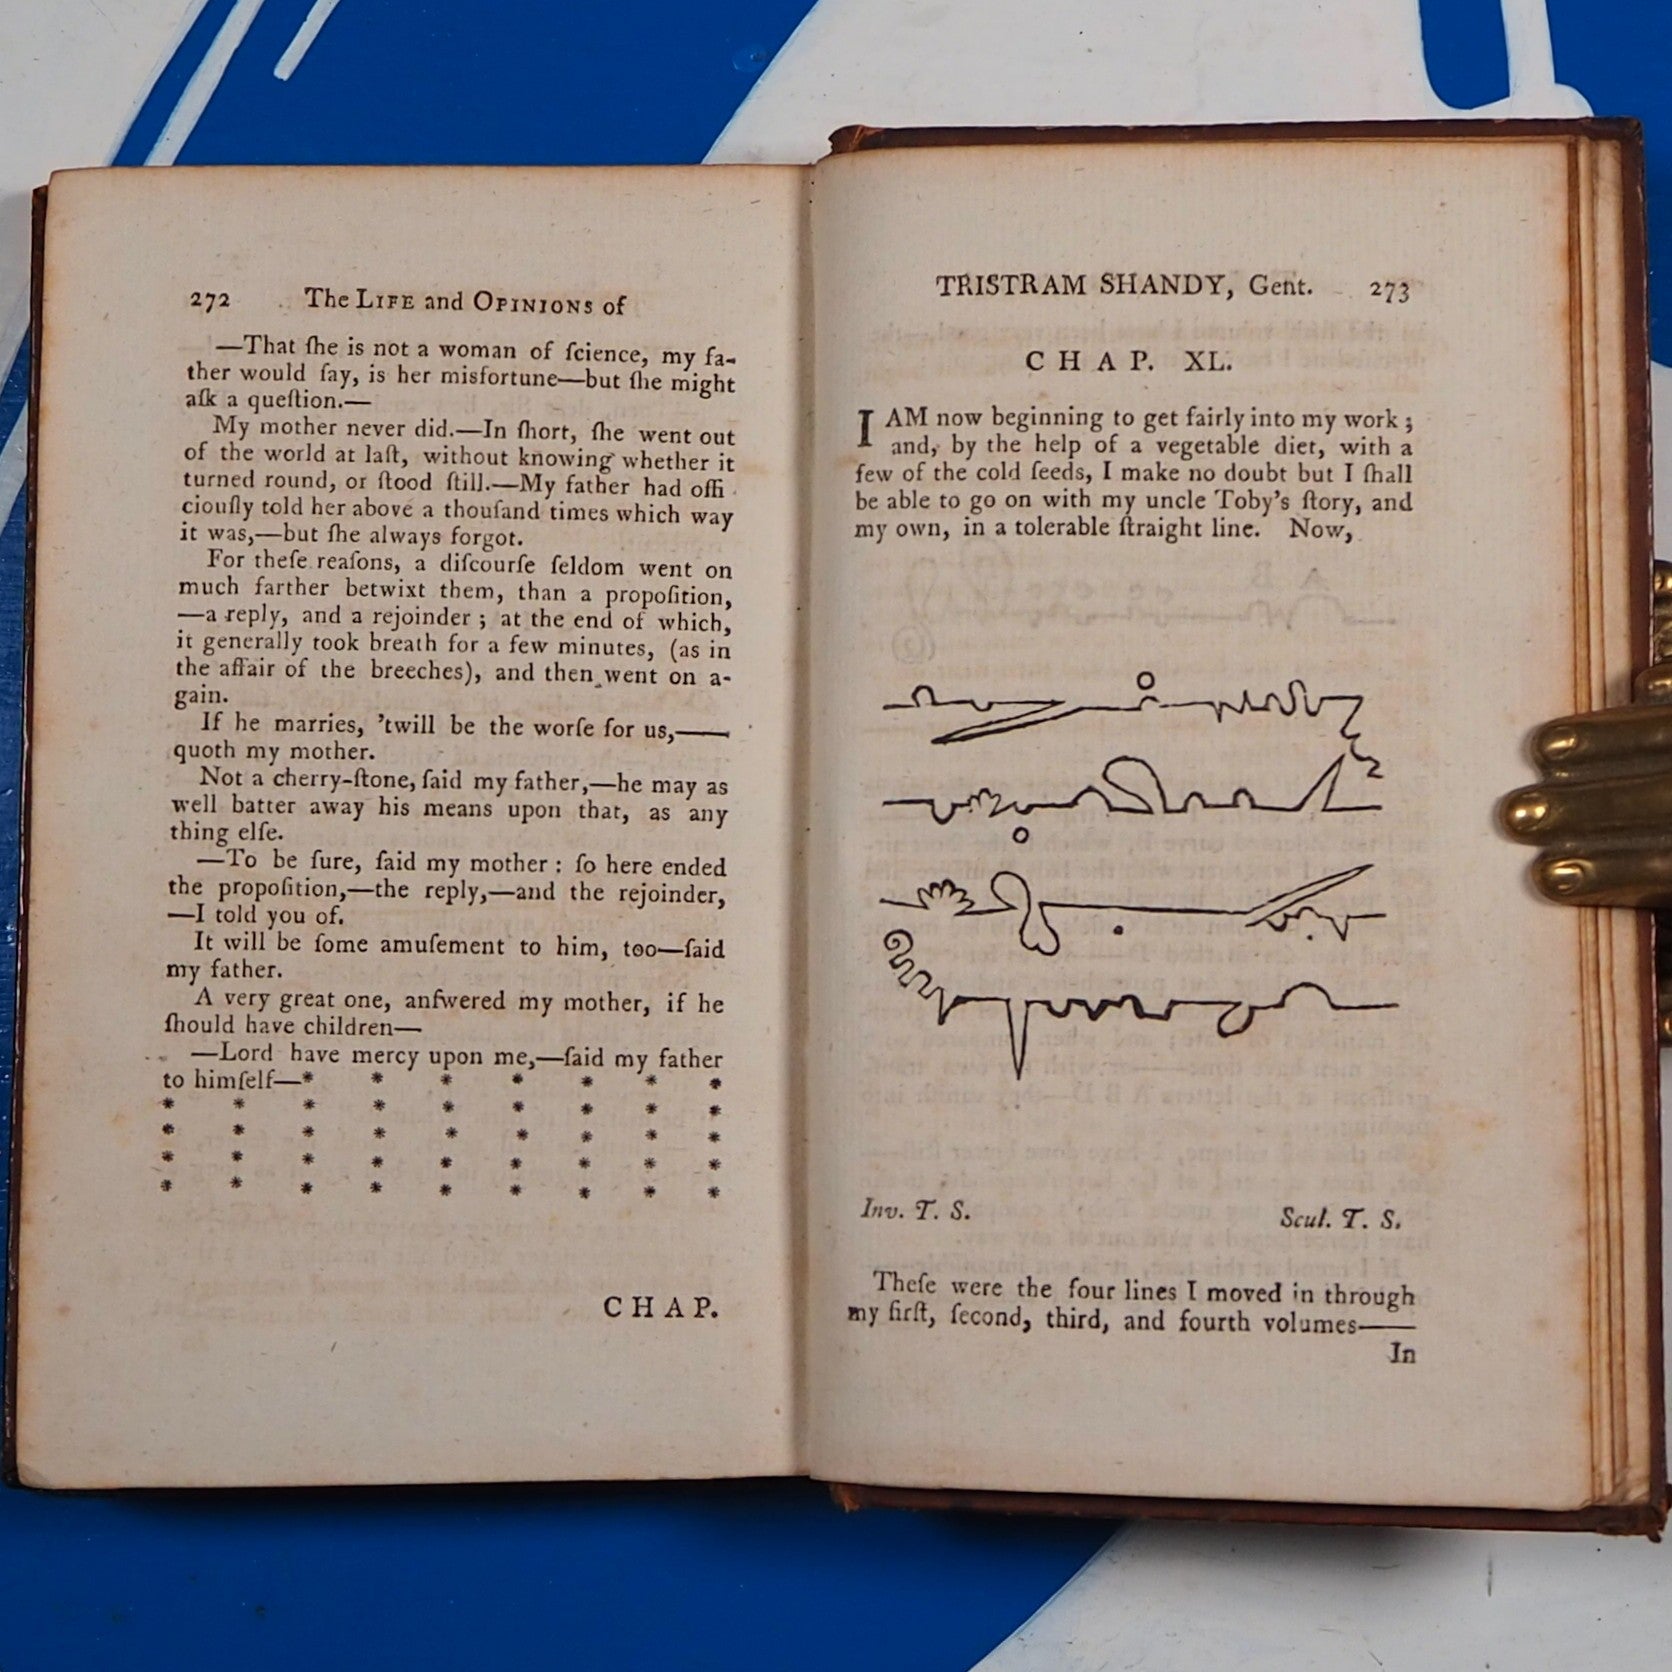 272 The LIFE and OPINIONS of
—That ſhe is not a woman of ſcience, my fa-
ther would ſay, is her misfortune—but ſhe might
aſk a queſtion.—
My mother never did.—In ſhort, ſhe went out
of the world at laſt, without knowing whether it
turned round, or ſtood ſtill.—My father had offi-
ciouſly told her above a thouſand times which way
it was,—but ſhe always forgot.
For theſe reaſons, a diſcourſe ſeldom went on
much farther betwixt them, than a propoſition,
—a reply, and a rejoinder; at the end of which,
it generally took breath for a few minutes, (as in
the affair of the breeches), and then went on a-
gain.
If he marries, 'twill be the worſe for us,——
quoth my mother.
Not a cherry-ſtone, ſaid my father,—he may as
well batter away his means upon that, as any
thing elſe.
—To be ſure, ſaid my mother: ſo here ended
the propoſition,—the reply,—and the rejoinder,
—I told you of.
It will be ſome amuſement to him, too—ſaid
my father.
A very great one, anſwered my mother, if he
ſhould have children—
—Lord have mercy upon me,—ſaid my father
to himſelf—* * * * * * *
* * * * * * * * *
* * * * * * * * *
* * * * * * * * *
* * * * * * * * *
CHAP.
TRISTRAM SHANDY, Gent. 273
CHAP. XL.
I AM now beginning to get fairly into my work;
and, by the help of a vegetable diet, with a
few of the cold ſeeds, I make no doubt but I ſhall
be able to go on with my uncle Toby's ſtory, and
my own, in a tolerable ſtraight line. Now,
Inv. T. S. Scul. T. S.
Theſe were the four lines I moved in through
my firſt, ſecond, third, and fourth volumes——
In